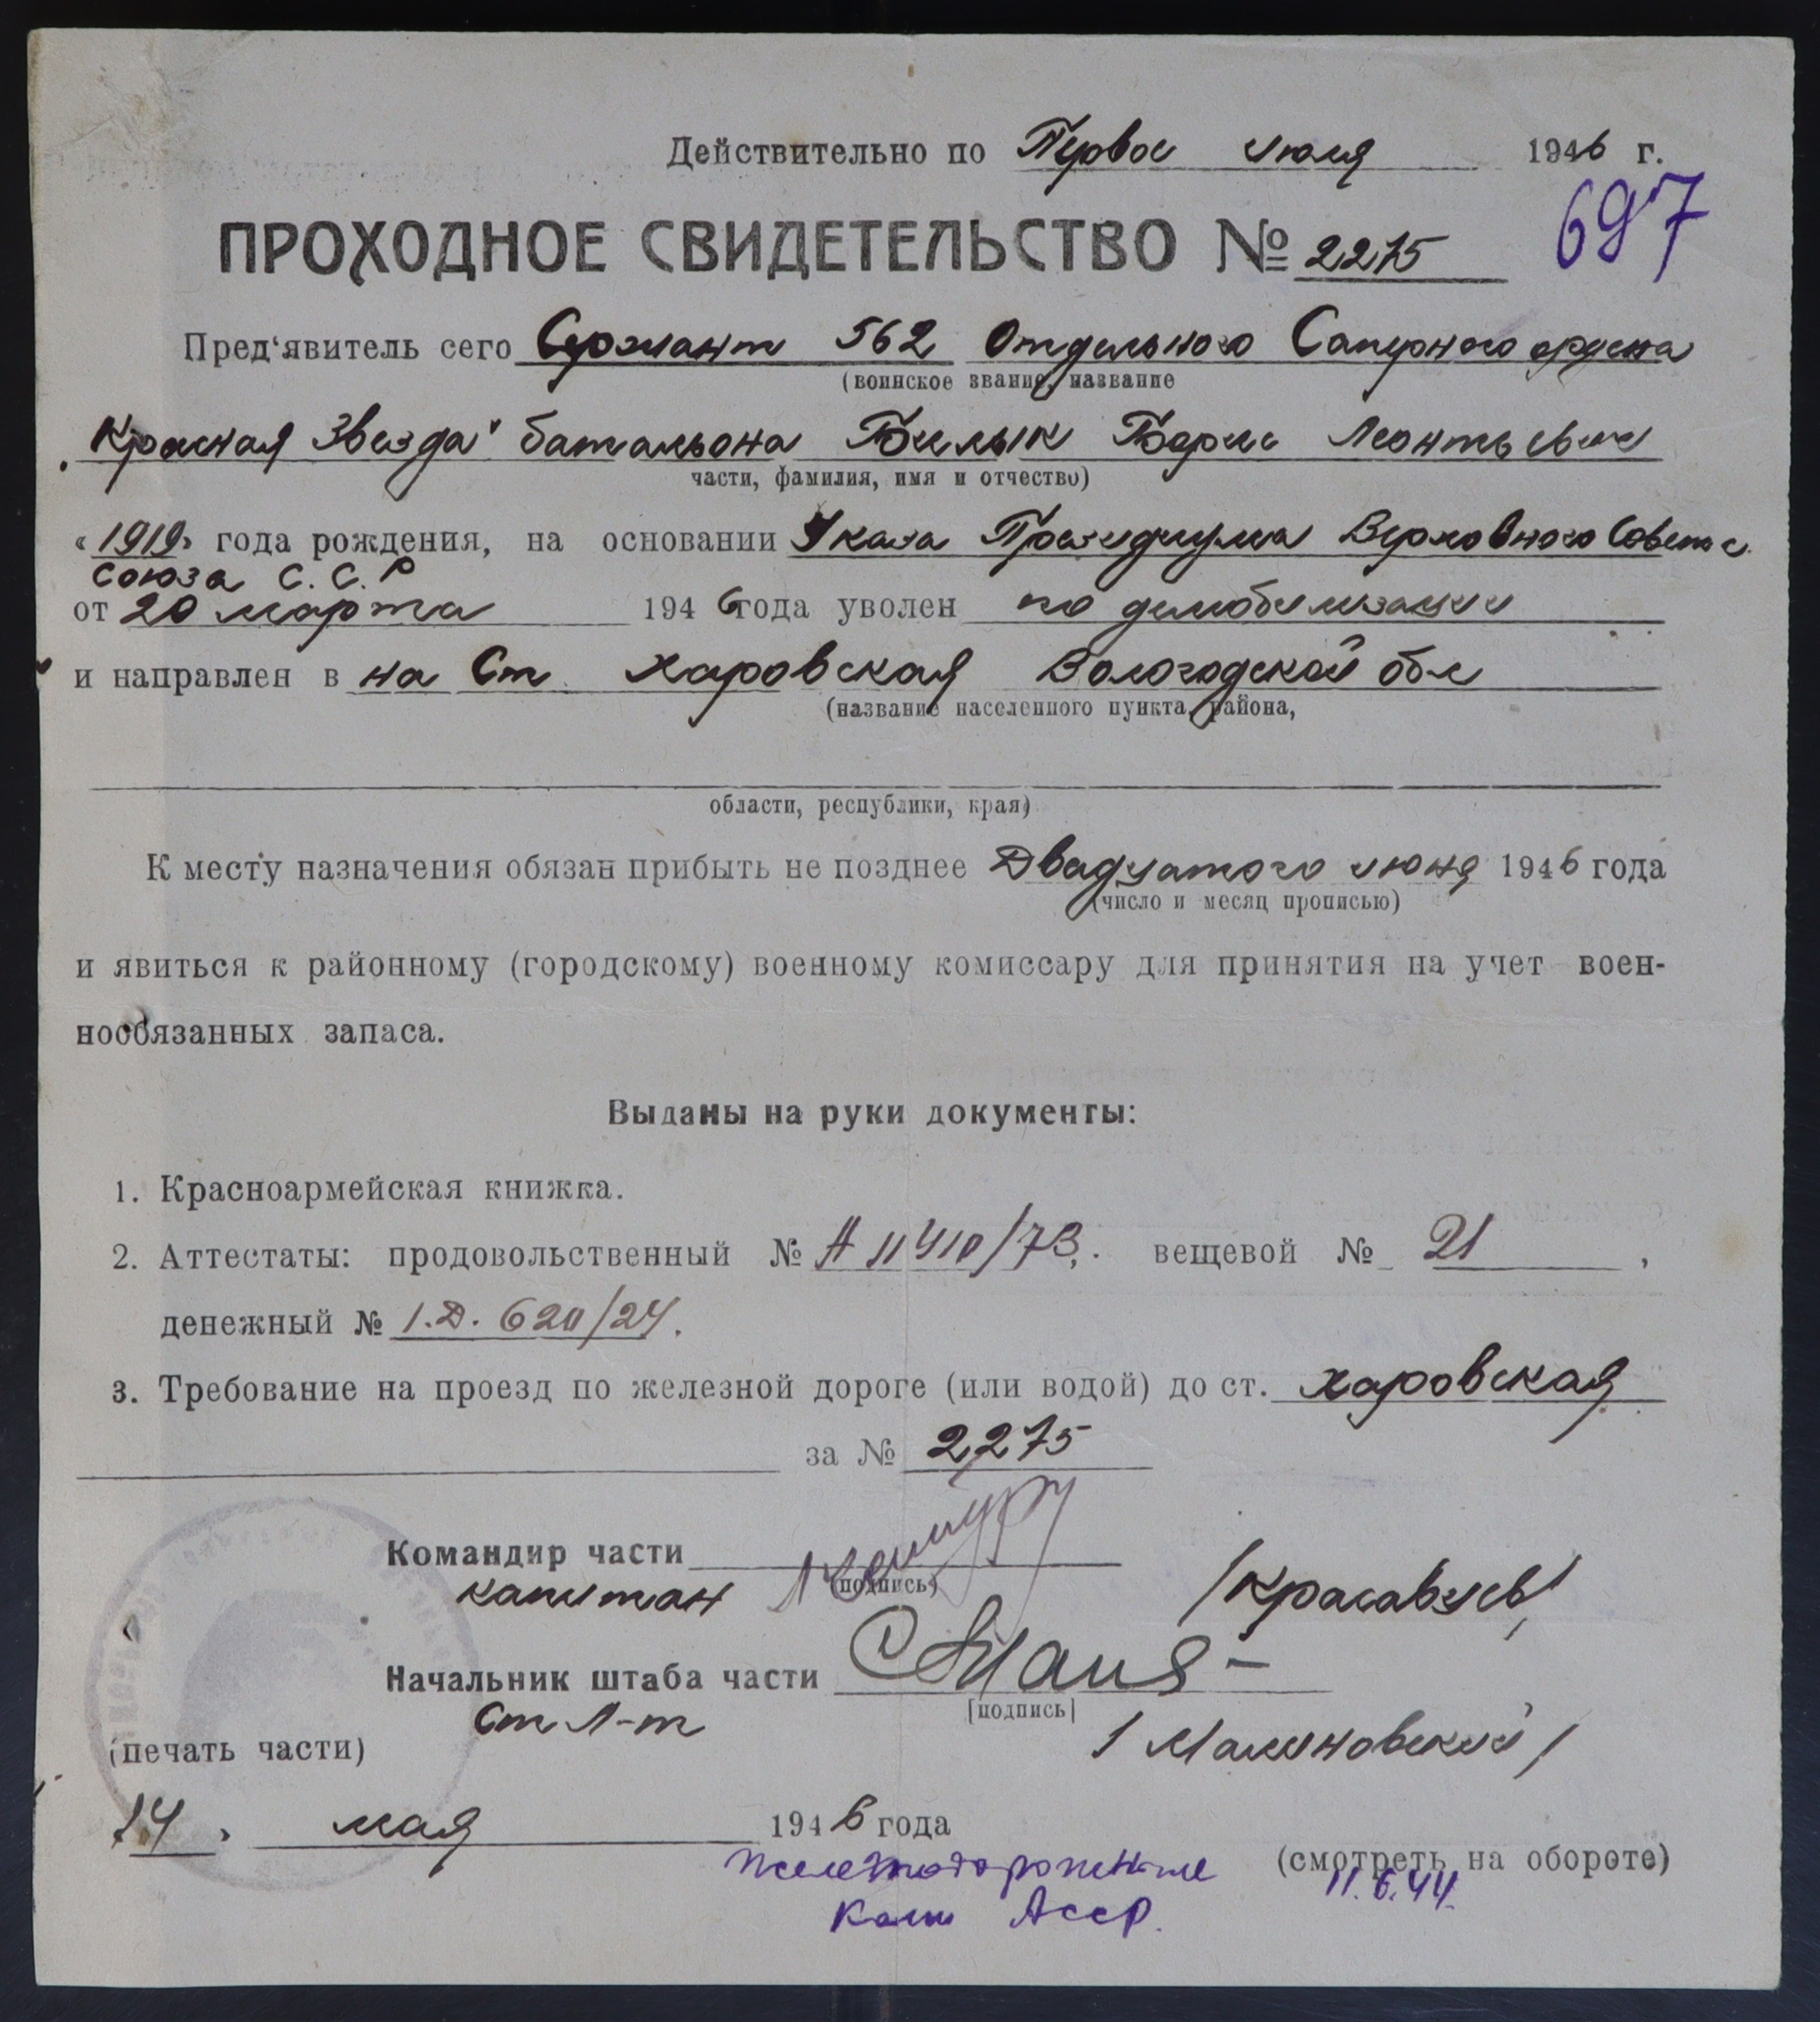 Действительно по Первое июля 1946 г.
ПРОХОДНОЕ СВИДЕТЕЛЬСТВО № 2275
697
Пред‘явитель сего Сержант 562 Отдельного Саперного ордена
(воинское звание, название
„Красная Звезда" батальона Билык Борис Леонтьевич
части, фамилия, имя и отчество)
«1919» года рождения, на основании Указа Президиума Верховного Совета
Союза С.С.Р
от 20 марта 1946 года уволен по демобилизации
и направлен в на Ст. Харовская Вологодской обл
(название населенного пункта, района,
области, республики, края)
К месту назначения обязан прибыть не позднее Двадцатого июня 1946 года
(число и месяц прописью)
и явиться к районному (городскому) военному комиссару для принятия на учет воен-
нообязанных запаса.
Выданы на руки документы:
1. Красноармейская книжка.
2. Аттестаты: продовольственный № А 11410/73, вещевой № 21,
денежный № 1.Д. 620/24.
3. Требование на проезд по железной дороге (или водой) до ст. Харовская
за № 2275
Командир части
(подпись)
капитан /Красавцев/
Начальник штаба части
[подпись]
Ст Л-т /Малиновский/
(печать части)
14 мая 1946 года
(смотреть на обороте)
11.6.44.
АССР.